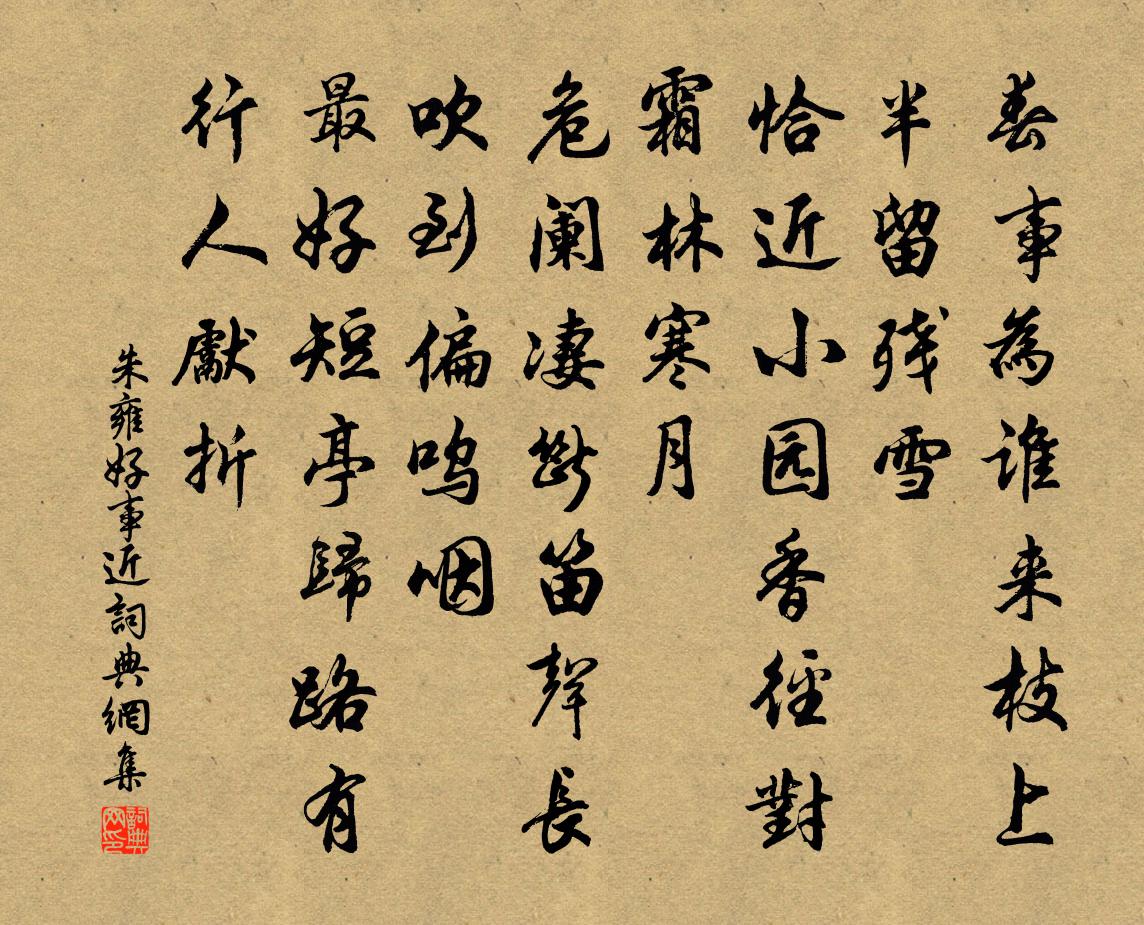 春事為谁来枝上
半留残雪
恰近小园香徑對
霜林寒月
危阑凄斷笛聲長
吹到偏鸣咽
最好短亭歸路有
行人獻折
朱雍好事近詞典網集
詞典网印